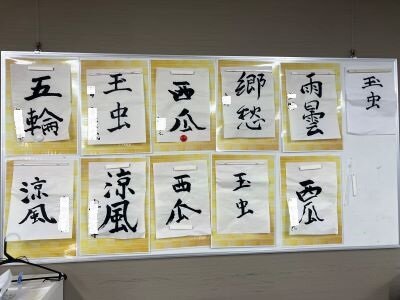 五輪
玉虫
西瓜
郷愁
雨曇
玉虫
涼風
涼風
西瓜
玉虫
西瓜